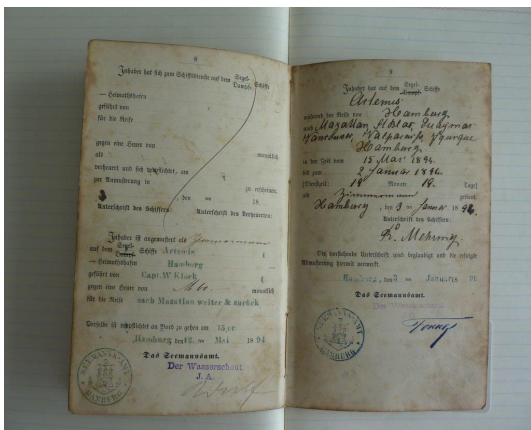 8
Inhaber hat sich zum Schiffsdienste auf dem Segel- Dampf- Schiffe
— Heimathshafen
geführt von
für die Reise
gegen eine Heuer von monatlich
als
verheuert und sich verpflichtet, am
zur Anmusterung in zu erscheinen.
, den ten 18
Unterschrift des Schiffers: Unterschrift des Verheuerten:
Inhaber ist angemustert als Zimmermann
auf dem Segel- Dampf- Schiffe Artemis
— Heimathshafen Hamburg
geführt von Capt. W Klock
gegen eine Heuer von monatlich
für die Reise nach Mazatlan weiter & zurück
Derselbe ist verpflichtet an Bord zu gehen am 15 cr
Hamburg, den 12. ten Mai 1894
Das Seemannsamt.
Der Wasserschout
J. A.
SEEMANNSAMT HAMBURG
9
Inhaber hat auf dem Segel- Dampf- Schiffe
Artemis
während der Reise von Hamburg
nach Mazatlan St Blas, Guaymas
Valparaiso, Yquique
Hamburg
in der Zeit vom 15 Mai 1894
bis zum 2 Januar 1896
19 Monate 18 Tage
als Zimmermann gedient.
Hamburg, den 3 ten Januar 1896
Unterschrift des Schiffers:
Die vorstehende Unterschrift wird beglaubigt und die erfolgte
Abmusterung hiermit vermerkt.
Hamburg, den 3 ten Januar 18 96
Das Seemannsamt.
Der Wasserschout
SEEMANNSAMT HAMBURG